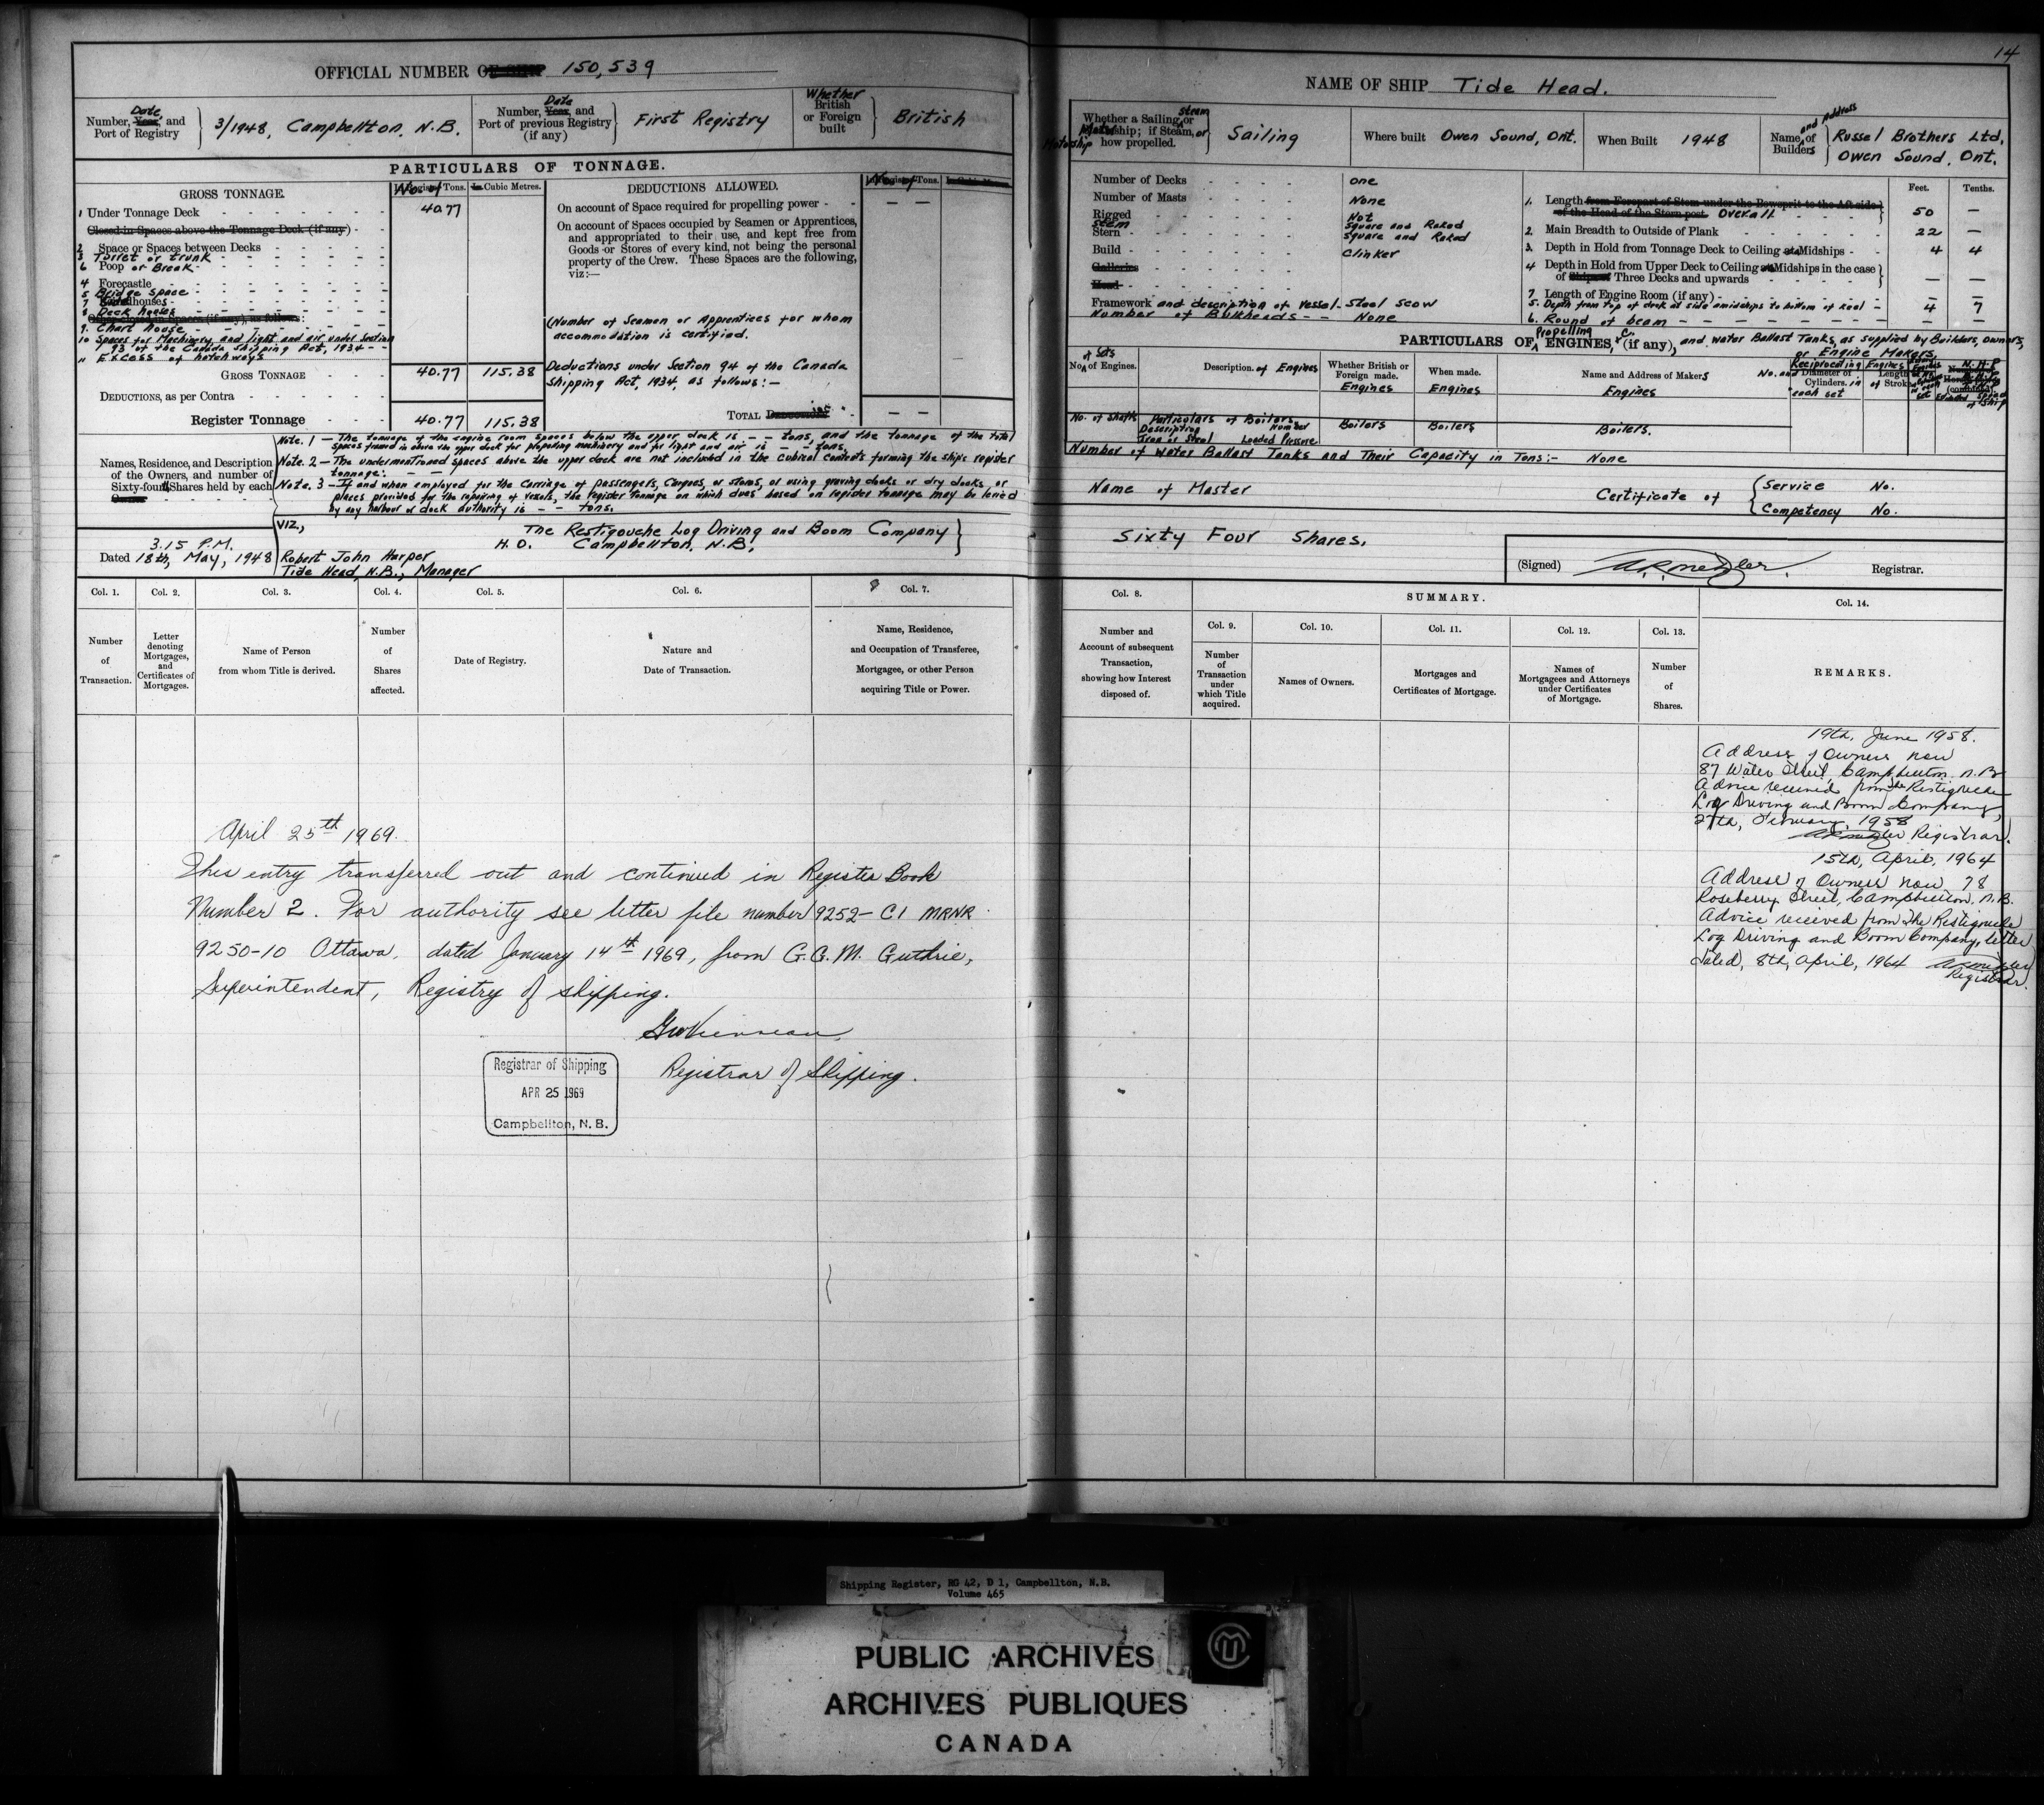 14
OFFICIAL NUMBER OF SHIP 150,539
Date
Number, Year, and
Port of Registry
3/1948, Campbellton, N.B.
Date
Number, Year, and
Port of previous Registry
(if any)
First Registry
Whether
British
or Foreign
built
British
PARTICULARS OF TONNAGE.
GROSS TONNAGE.
No. of Register Tons.
In Cubic Metres.
1 Under Tonnage Deck
40.77
Closed-in Spaces above the Tonnage Deck (if any)
2 Space or Spaces between Decks
3 Turret or trunk
6 Poop or Break
4 Forecastle
5 Bridge space
7 Roundhouses
8 Deck houses
Other closed-in Spaces (if any), as follows:
9. Chart house
10 Spaces for Machinery, and light and air under Section
93 of the Canada Shipping Act, 1934 - -
11 Excess of hatchways
GROSS TONNAGE
40.77 115.38
DEDUCTIONS, as per Contra
Register Tonnage
40.77 115.38
DEDUCTIONS ALLOWED.
No. of Register Tons.
In Cubic Metres.
On account of Space required for propelling power - -
— —
On account of Spaces occupied by Seamen or Apprentices,
and appropriated to their use, and kept free from
Goods or Stores of every kind, not being the personal
property of the Crew. These Spaces are the following,
viz:—
(Number of Seamen or Apprentices for whom
accommodation is certified.
Deductions under Section 94 of the Canada
Shipping Act, 1934, as follows:—
TOTAL
— —
Note. 1 — The tonnage of the engine room spaces below the upper deck is - - tons, and the tonnage of the total
spaces framed in above the upper deck for propelling machinery and for light and air is - - tons.
Note. 2 — The undermentioned spaces above the upper deck are not included in the cubical contents forming the ship's register
tonnage: - -
Note. 3 — If and when employed for the carriage of passengers, cargoes, or stores, or using graving docks or dry docks or
places provided for the repairing of vessels, the register tonnage on which dues based on register tonnage may be levied
by any harbour or dock authority is - - tons.
Names, Residence, and Description
of the Owners, and number of
Sixty-fourth Shares held by each
Owner
VIZ.,
The Restigouche Log Driving and Boom Company
H.O. Campbellton, N.B.,
3.15 P.M.
Dated 18th, May, 1948
Robert John Harper
Tide Head, N.B., Manager
Col. 1.
Col. 2.
Col. 3.
Col. 4.
Col. 5.
Col. 6.
Col. 7.
Number
of
Transaction.
Letter
denoting
Mortgages,
and
Certificates of
Mortgages.
Name of Person
from whom Title is derived.
Number
of
Shares
affected.
Date of Registry.
Nature and
Date of Transaction.
Name, Residence,
and Occupation of Transferee,
Mortgagee, or other Person
acquiring Title or Power.
April 25th 1969.
This entry transferred out and continued in Register Book
Number 2. For authority see letter file number 9252-C1 MRNR
9250-10 Ottawa, dated January 14th 1969, from G.G.M. Guthrie,
Superintendent, Registry of shipping.
Registrar of Shipping.
Registrar of Shipping
APR 25 1969
Campbellton, N. B.
NAME OF SHIP Tide Head.
Whether a Sailing, Steam or
Motor ship; if Steam, or
Motorship how propelled.
Sailing
Where built Owen Sound, Ont.
When Built 1948
Name and Address of
Builders
Russel Brothers Ltd.
Owen Sound, Ont.
Number of Decks
One
Number of Masts
None
Rigged
Not
Stem
Square and Raked
Stern
Square and Raked
Build
Clinker
Galleries
Head
Framework and description of vessel - Steel scow
Number of Bulkheads - - None
Feet. Tenths.
1. Length from Forepart of Stem under the Bowsprit to the Aft side
of the Head of the Stern post. Overall.
50 —
2. Main Breadth to Outside of Plank
22 —
3. Depth in Hold from Tonnage Deck to Ceiling at Midships
4 4
4 Depth in Hold from Upper Deck to Ceiling at Midships in the case
of Ships of Three Decks and upwards
— —
7. Length of Engine Room (if any)
— —
5. Depth from top of deck at side amidships to bottom of keel
4 7
6. Round of beam
— —
PARTICULARS OF Propelling ENGINES, &c. (if any), and Water Ballast Tanks, as supplied by Builders, owners,
or Engine Makers.
No. of Sets of Engines.
Description of Engines
Whether British or
Foreign made.
Engines
When made.
Engines
Name and Address of Makers
Engines
Reciprocating Engines
No. and Diameter of
Cylinders. in
each set
Length
of Stroke
No. of Shafts
Particulars of Boilers
Description
Number
Iron or Steel
Loaded Pressure
Boilers
Boilers
Boilers.
Number of Water Ballast Tanks and Their Capacity in Tons:- None
Name of Master
Certificate of
Service No.
Competency No.
Sixty Four Shares.
(Signed)
Registrar.
Col. 8.
SUMMARY.
Col. 14.
Col. 9.
Col. 10.
Col. 11.
Col. 12.
Col. 13.
Number and
Account of subsequent
Transaction,
showing how Interest
disposed of.
Number
of
Transaction
under
which Title
acquired.
Names of Owners.
Mortgages and
Certificates of Mortgage.
Names of
Mortgagees and Attorneys
under Certificates
of Mortgage.
Number
of
Shares.
REMARKS.
19th, June 1958.
Address of Owners now
87 Water Street, Campbellton, N.B.
Advice received from the Restigouche
Log Driving and Boom Company,
27th, February, 1958
Registrar.
15th, April, 1964
Address of Owners now 78
Roseberry Street, Campbellton, N.B.
Advice received from The Restigouche
Log Driving and Boom Company, letter
dated, 8th, April, 1964
Registrar.
Shipping Register, RG 42, D 1, Campbellton, N.B.
Volume 465
PUBLIC ARCHIVES
ARCHIVES PUBLIQUES
CANADA